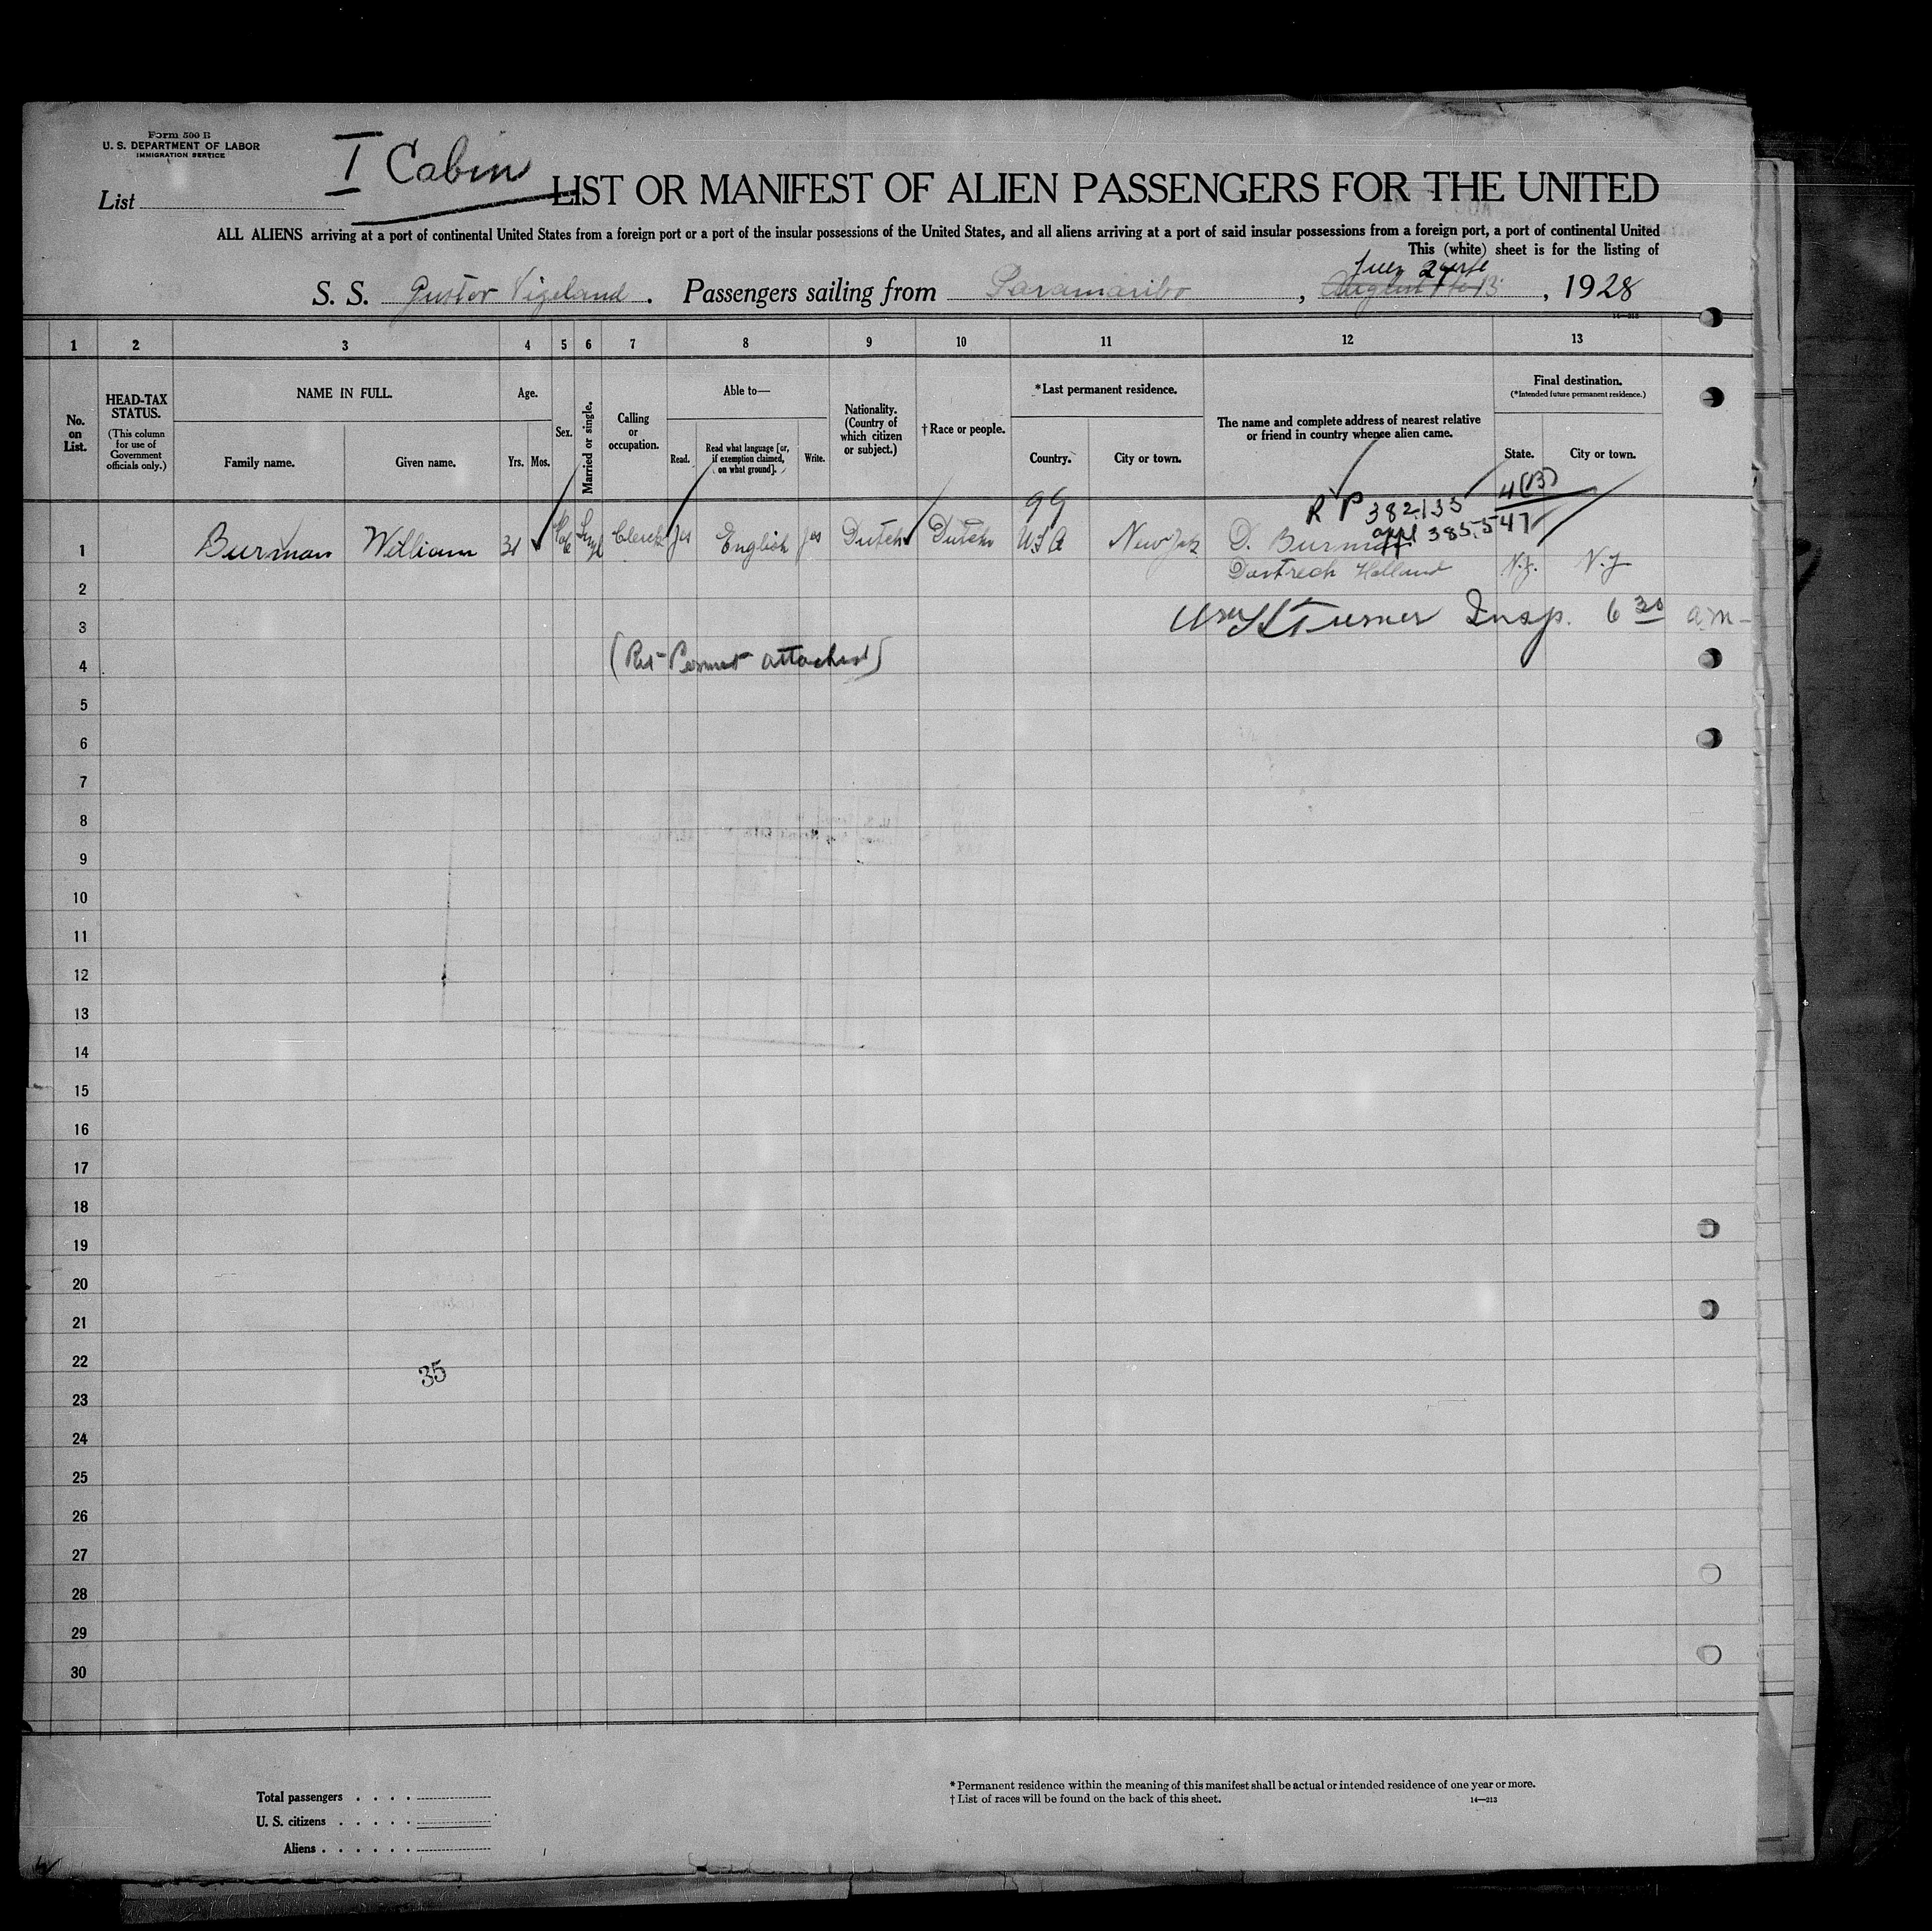 Form 500 B
U. S. DEPARTMENT OF LABOR
IMMIGRATION SERVICE
I Cabin
List
LIST OR MANIFEST OF ALIEN PASSENGERS FOR THE UNITED
ALL ALIENS arriving at a port of continental United States from a foreign port or a port of the insular possessions of the United States, and all aliens arriving at a port of said insular possessions from a foreign port, a port of continental United
This (white) sheet is for the listing of
S. S. Gustav Vigeland. Passengers sailing from Paramaribo, , 1928
1 2 3 4 5 6 7 8 9 10 11 12 13
No. on List.
HEAD-TAX STATUS.
(This column for use of Government officials only.)
NAME IN FULL.
Family name. Given name.
Age.
Yrs. Mos.
Sex.
Married or single.
Calling or occupation.
Able to—
Read. Read what language [or, if exemption claimed, on what ground]. Write.
Nationality. (Country of which citizen or subject.)
† Race or people.
*Last permanent residence.
Country. City or town.
The name and complete address of nearest relative or friend in country whence alien came.
Final destination.
(*Intended future permanent residence.)
State. City or town.
99 R P 382135 4(13)
appl 385,547
1 Burman William 31 Clerck yes English yes Dutch Dutch USA New York D. Burman
2 Holland N.Y. N.Y
3 Turner Insp. 6 30 a.m-
4 (Ret Permit attached)
5
6
7
8
9
10
11
12
13
14
15
16
17
18
19
20
21
22
35
23
24
25
26
27
28
29
30
Total passengers . . . .
U. S. citizens . . . . .
Aliens . . . . . .
* Permanent residence within the meaning of this manifest shall be actual or intended residence of one year or more.
† List of races will be found on the back of this sheet.
14—213